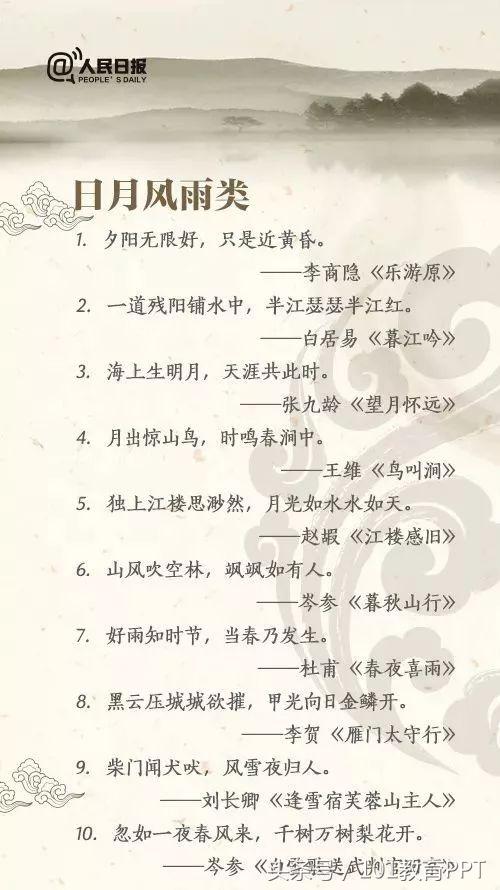 @人民日报
PEOPLE'S DAILY
日月风雨类
1. 夕阳无限好，只是近黄昏。
——李商隐《乐游原》
2. 一道残阳铺水中，半江瑟瑟半江红。
——白居易《暮江吟》
3. 海上生明月，天涯共此时。
——张九龄《望月怀远》
4. 月出惊山鸟，时鸣春涧中。
——王维《鸟叫涧》
5. 独上江楼思渺然，月光如水水如天。
——赵嘏《江楼感旧》
6. 山风吹空林，飒飒如有人。
——岑参《暮秋山行》
7. 好雨知时节，当春乃发生。
——杜甫《春夜喜雨》
8. 黑云压城城欲摧，甲光向日金鳞开。
——李贺《雁门太守行》
9. 柴门闻犬吠，风雪夜归人。
——刘长卿《逢雪宿芙蓉山主人》
10. 忽如一夜春风来，千树万树梨花开。
——岑参《白雪歌送武判官归京》
头条号 / 101教育PPT